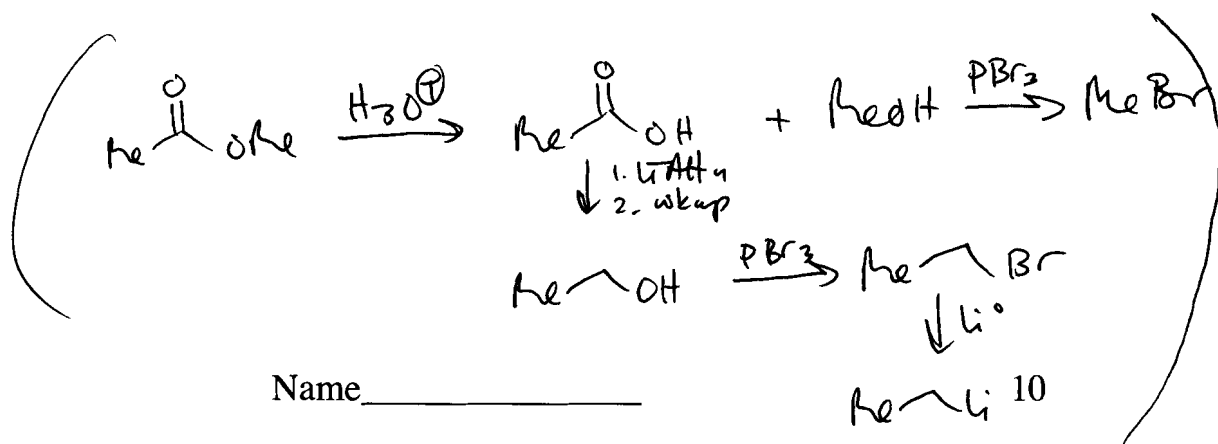 O O
Me OMe H3O⊕ Me OH + MeOH PBr3 MeBr
1. LiAlH4
2. wkup
Me OH PBr3 Me Br
Li°
Name____________ Me Li 10